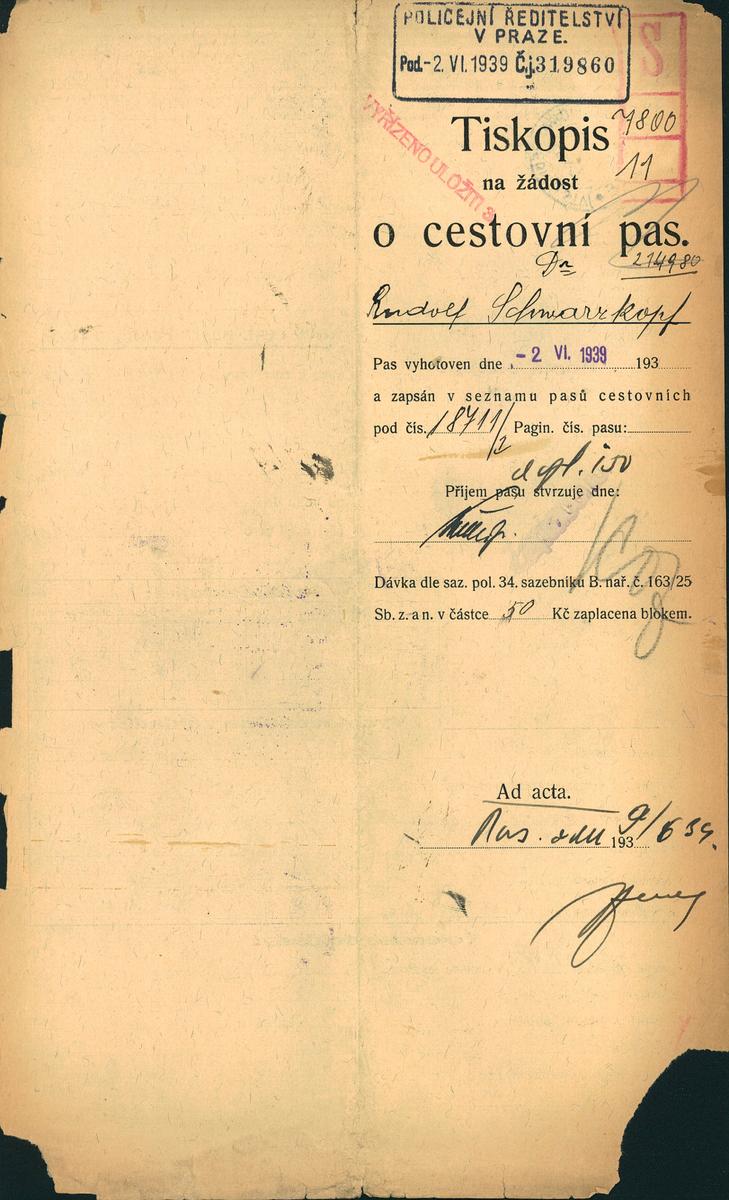 POLICEJNÍ ŘEDITELSTVÍ
V PRAZE.
Pod.-2. VI. 1939 Čj. 319860
S
7800
11
VYŘÍZENO ULOŽITI
Tiskopis
na žádost
o cestovní pas.
214980
Dr
Rudolf Schwarzkopf
Pas vyhotoven dne -2 VI. 1939 193
a zapsán v seznamu pasů cestovních
pod čís. 18711/2 Pagin. čís. pasu:
Příjem pasu stvrzuje dne:
Dávka dle saz. pol. 34. sazebníku B. nař. č. 163/25
Sb. z. a n. v částce 50 Kč zaplacena blokem.
Ad acta.
193 9/6 39.